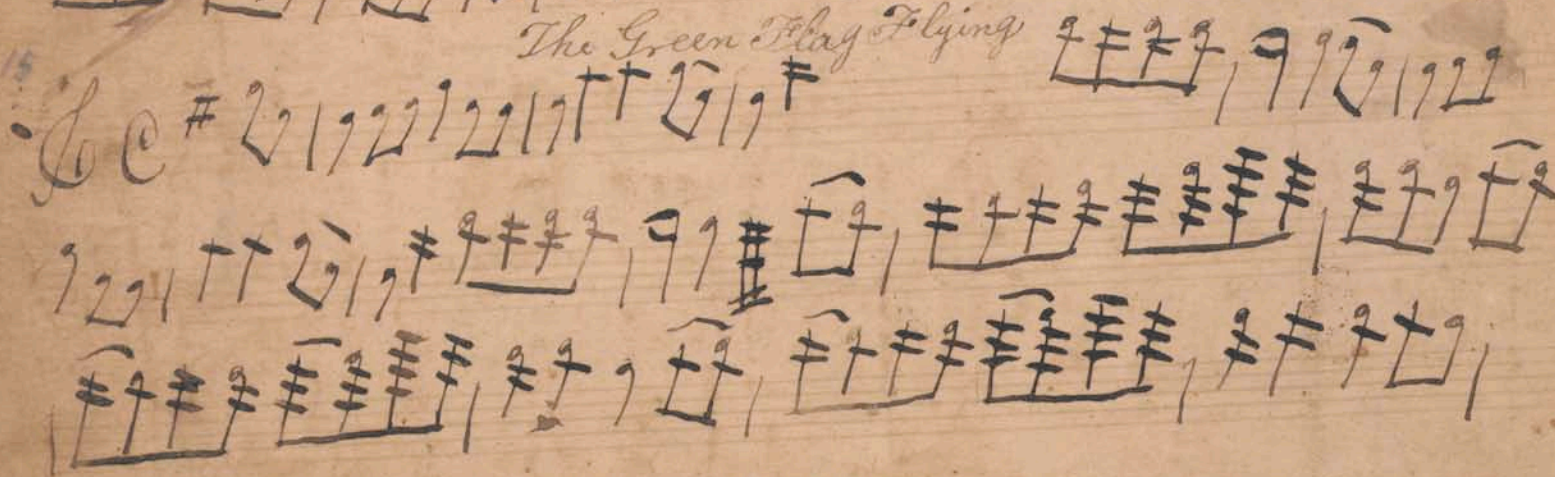 The Green Flag Flying
15